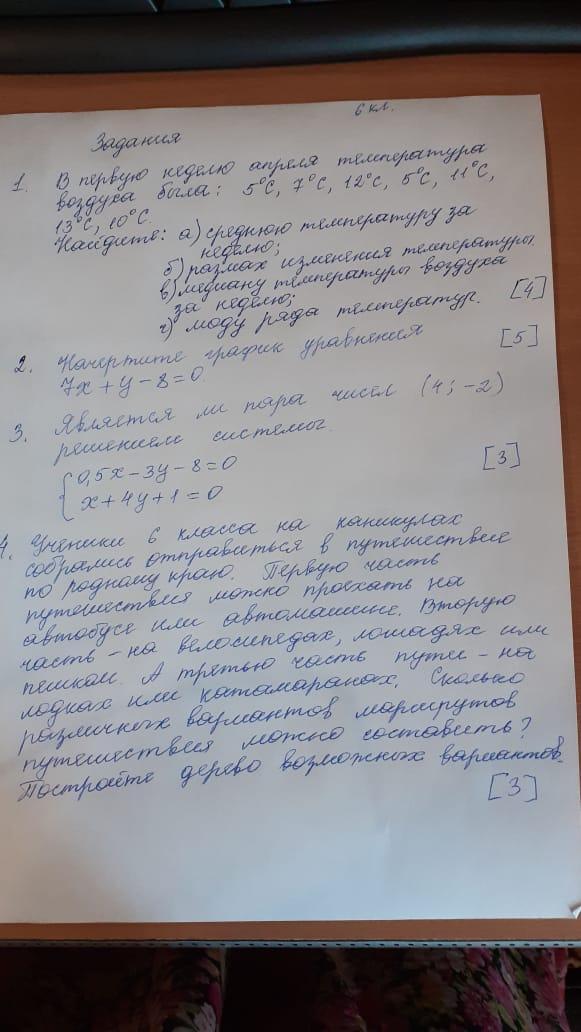 6 кл.
Задания
1. В первую неделю апреля температура
воздуха была: 5°С, 7°С, 12°С, 5°С, 11°С,
13°С, 10°С.
Найдите: а) среднюю температуру за
неделю;
б) размах изменения температуры.
в) медиану температуры воздуха
за неделю;
г) моду ряда температур. [4]
2. Начертите график уравнения
7x + y - 8 = 0. [5]
3. Является ли пара чисел (4; -2)
решением системы.
0,5x - 3y - 8 = 0
x + 4y + 1 = 0 [3]
4. Ученики 6 класса на каникулах
собрались отправиться в путешествие
по родному краю. Первую часть
путешествия можно проехать на
автобусе или автомашине. Вторую
часть - на велосипедах, лошадях или
пешком. А третью часть пути - на
лодках или катамаранах. Сколько
различных вариантов маршрутов
путешествия можно составить?
Постройте дерево возможных вариантов.
[3]